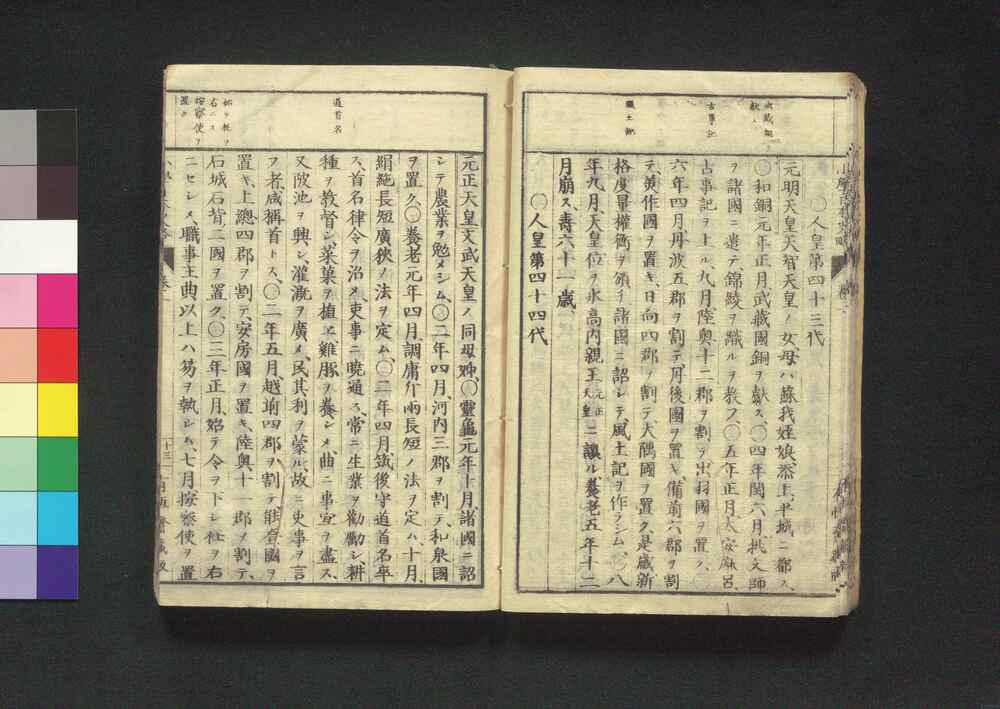 〇人皇第四十三代
元明天皇天智天皇ノ女母ハ蘇我姪娘添上平城ニ都ス
〇和銅元年正月武藏國銅ヲ獻ス〇四年閏六月挑文師
ヲ諸國ニ遣テ錦綾ヲ織ルヲ教フ〇五年正月太安麻呂
古事記ヲ上ル九月陸奥十二郡ヲ割テ出羽國ヲ置ク〇
六年四月丹波五郡ヲ割テ丹後國ヲ置キ備前六郡ヲ割
テ美作國ヲ置キ日向四郡ヲ割テ大隅國ヲ置ク是歳新
格度量權衡ヲ頒チ諸國ニ詔シテ風土記ヲ作ラシム〇八
年九月天皇位ヲ氷高内親王元正天皇ニ讓ル養老五年十二
月崩ス壽六十一歳
〇人皇第四十四代
古事記
風土記
元正天皇文武天皇ノ同母姉〇靈龜元年十月諸國ニ詔
シテ農業ヲ勉メシム〇二年四月河内三郡ヲ割テ和泉國
ヲ置ク〇養老元年四月調庸斤兩長短ノ法ヲ定ム十月
絹絁長短廣狹ノ法ヲ定ム〇二年四月筑後守道首名卒
ス首名律令ヲ治メ吏事ニ曉通ス常ニ生業ヲ勸勵シ耕
種ヲ教督シ菜菓ヲ植ヱ雞豚ヲ養シメ曲ニ事宜ヲ盡ス
又陂池ヲ興シ灌漑ヲ廣メ民其利ヲ蒙ル故ニ吏事ヲ言
フ者咸稱首トス〇二年五月越前四郡ヲ割テ能登國ヲ
置キ上總四郡ヲ割テ安房國ヲ置キ陸奥十一郡ヲ割テ
石城石背二國ヲ置ク〇三年正月始テ令ヲ下シ衽ヲ右
ニセシメ職事主典以上ハ笏ヲ執シム七月按察使ヲ置
道首名
始テ衽ヲ
右ニス
按察使ヲ
置ク